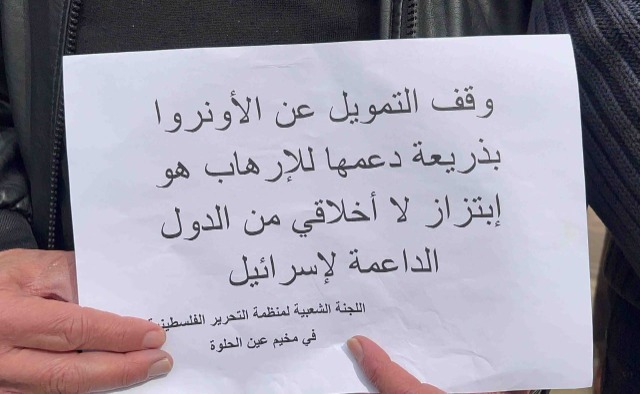 وقف التمويل عن الأونروا
بذريعة دعمها للإرهاب هو
إبتزاز لا أخلاقي من الدول
الداعمة لإسرائيل
اللجنة الشعبية لمنظمة التحرير الفلسطينية
في مخيم عين الحلوة